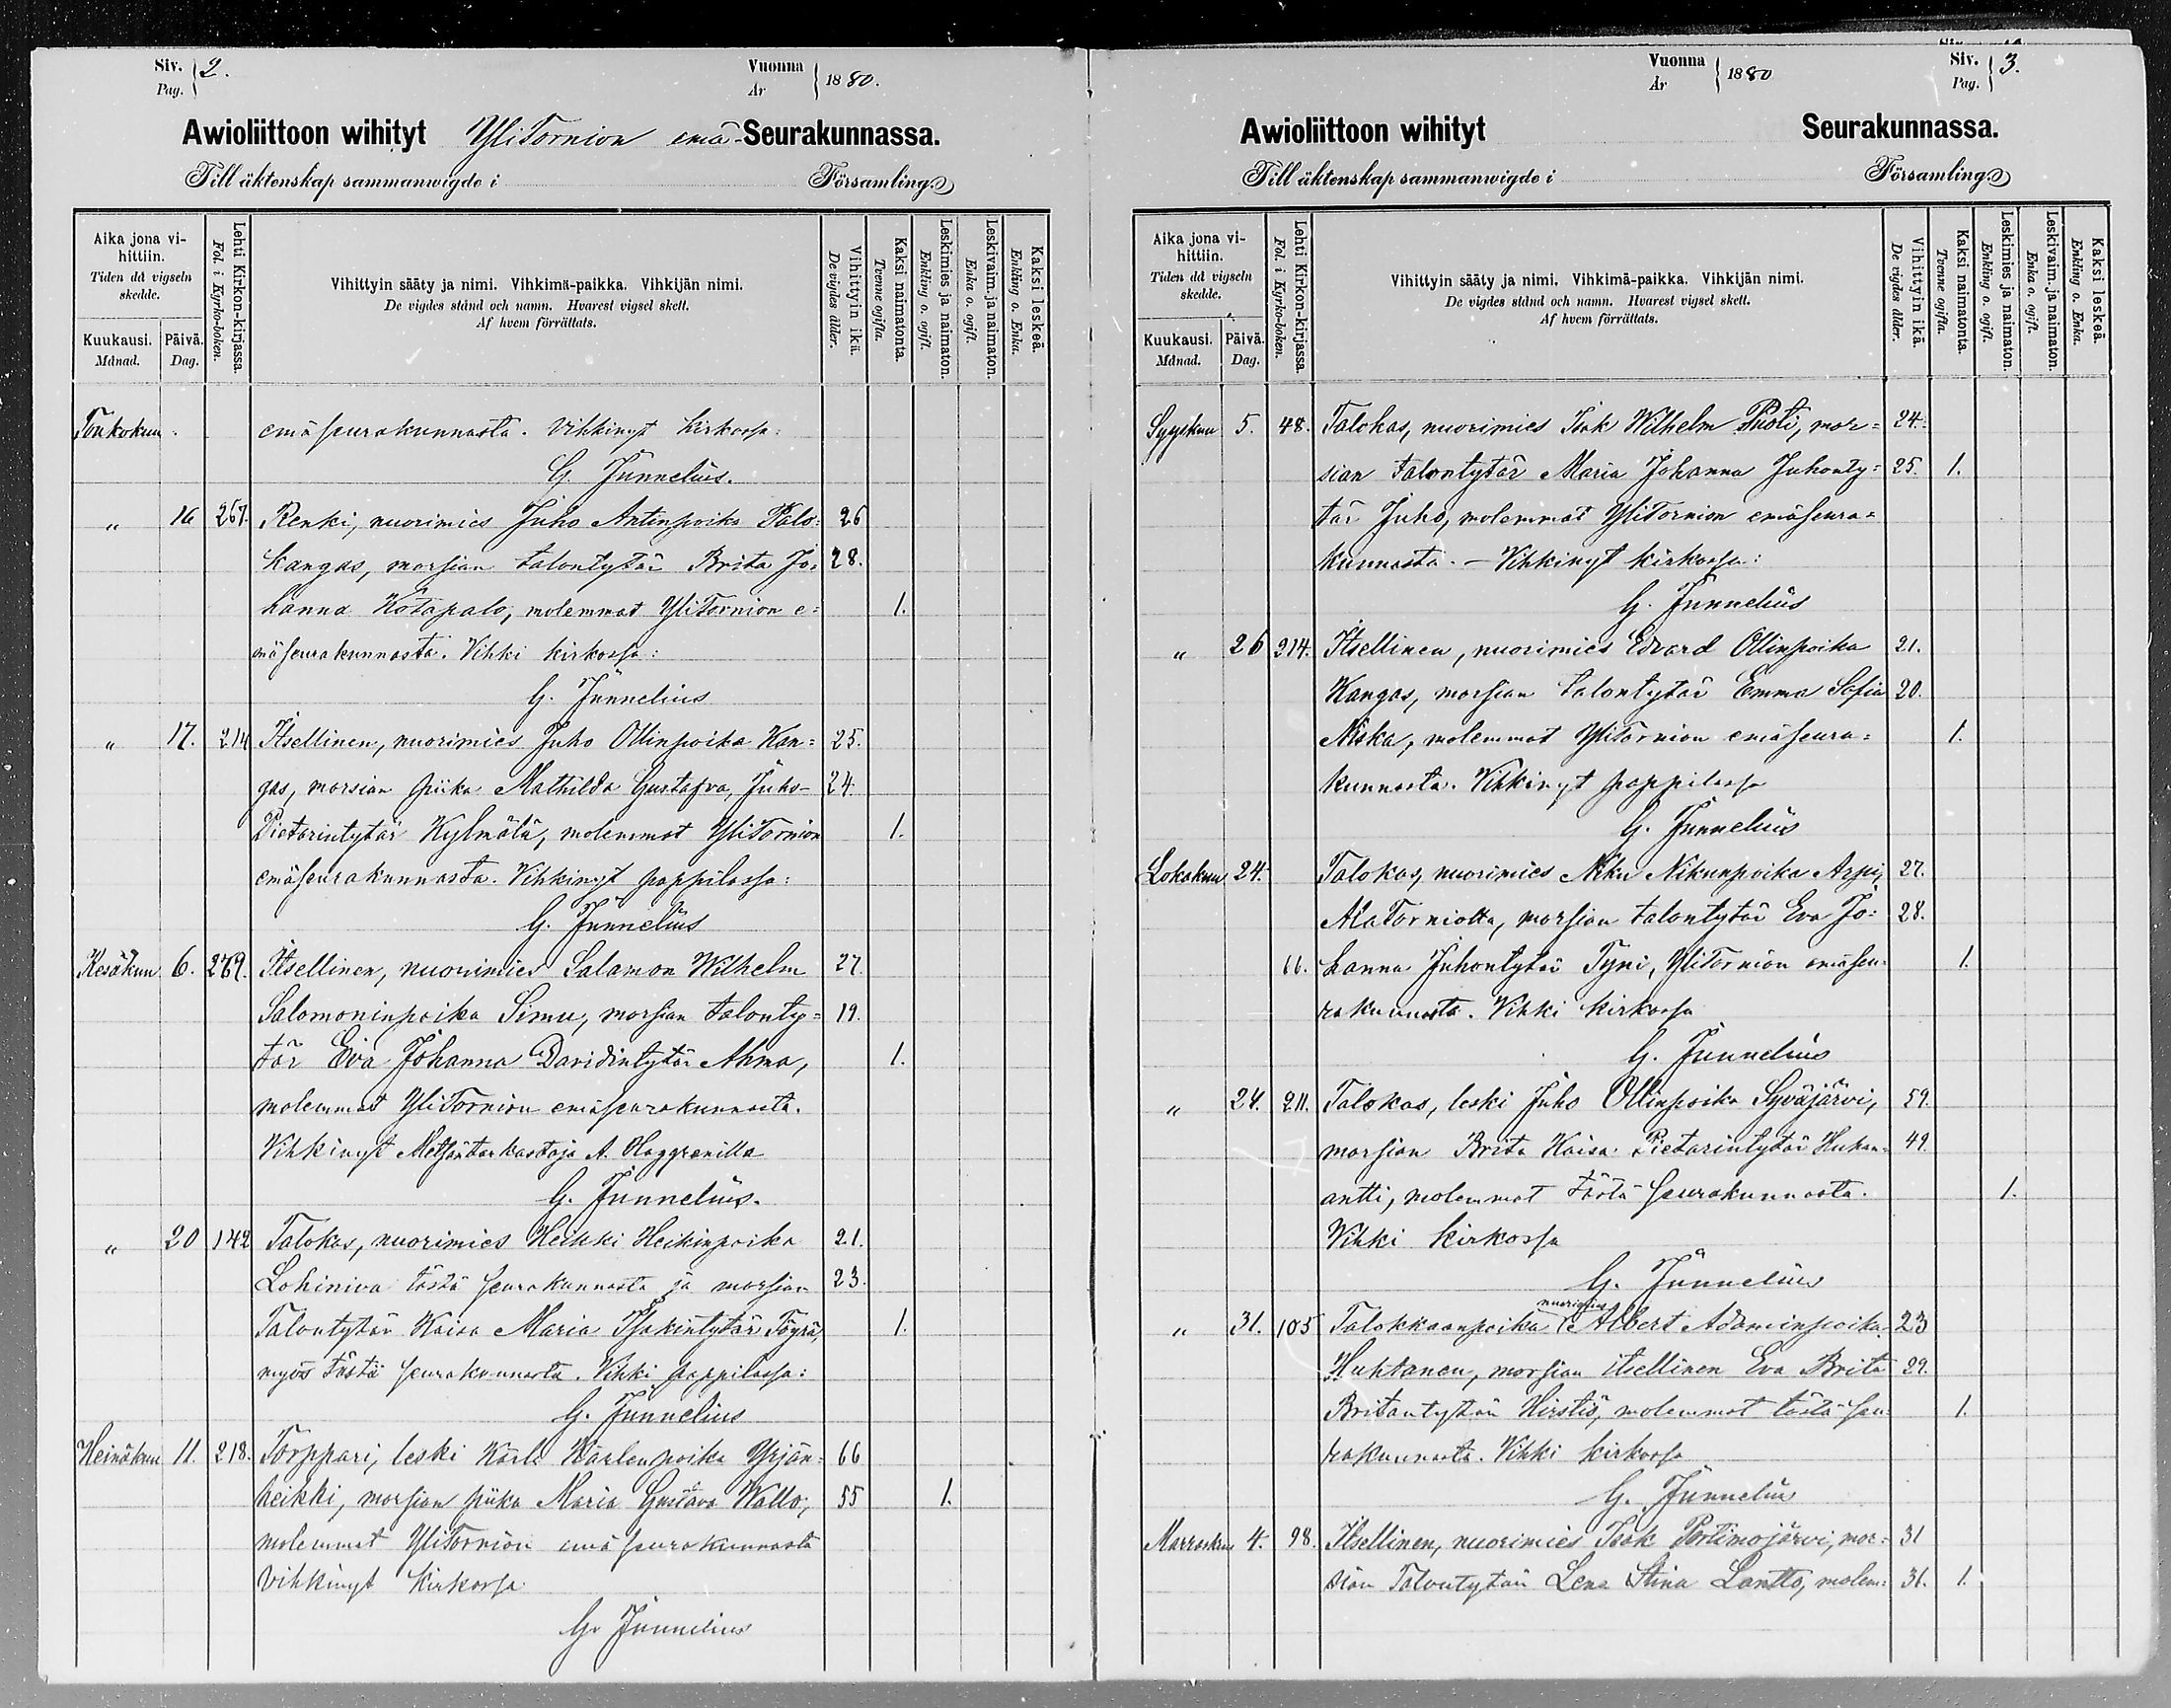 Siv. 2.
Pag.
Vuonna 1880.
År
Awioliittoon wihityt YliTornion emä-Seurakunnassa.
Till äktenskap sammanwigde i Församling.
Aika jona vi-
hittiin.
Tiden då vigseln
skedde.
Kuukausi.
Månad.
Päivä.
Dag.
Lehti Kirkon-kirjassa.
Fol. i Kyrko-boken.
Vihittyin sääty ja nimi. Vihkimä-paikka. Vihkijän nimi.
De vigdes stånd och namn. Hvarest vigsel skett.
Af hvem förrättats.
Vihittyin ikä.
De vigdes ålder.
Kaksi naimatonta.
Tvenne ogifta.
Leskimies ja naimaton.
Enkling o. ogift.
Leskivaim. ja naimaton.
Enka o. ogift.
Kaksi leskeä.
Enkling o. Enka.
Toukokuu. emäseurakunnasta. Vihkinyt kirkossa:
G. Junnelius.
" 16 267. Renki, nuorimies Juho Antinpoika Palo- 26
kangas, morsian talontytär Brita Jo- 28.
hanna Kotapalo, molemmat YliTornion e- 1.
mäseurakunnasta. Vihki kirkossa:
G. Junnelius
" 17. 214 Itsellinen, nuorimies Juho Ollinpoika Kan= 25.
gas, morsian piika Mathilda Gustafva, Juho- 24.
Pietarintytär Kylmälä, molemmat YliTornion 1.
emäseurakunnasta. Vihkinyt pappilassa:
G. Junnelius
Kesäkuu 6. 279. Itsellinen, nuorimies Salamon Wilhelm 27.
Salomoninpoika Simu, morsian talonty= 19.
tär Eva Johanna Davidintytär Ahma, 1.
molemmat YliTornion emäseurakunnasta.
Vihkinyt Metsäntarkastaja A. Haggrenilla
G. Junnelius.
" 20 142 Talokas, nuorimies Heikki Heikinpoika 21.
Lohiniva tästä seurakunnasta ja morsian 23.
Talontytär Kaisa Maria Isakintytär Töyrä, 1.
myös tästä seurakunnasta. Vihki pappilassa:
G. Junnelius
Heinäkuu 11. 218. Torppari, leski Karle Karlenpoika Yrjän- 66
heikki, morsian piika Maria Gustava Wallo, 55 1.
molemmat YliTornion emä seurakunnasta
vihkinyt kirkossa
G. Junnelius
Vuonna 1880
År
Siv. 3.
Pag.
Awioliittoon wihityt Seurakunnassa.
Till äktenskap sammanwigde i Församling.
Aika jona vi-
hittiin.
Tiden då vigseln
skedde.
Kuukausi.
Månad.
Päivä.
Dag.
Lehti Kirkon-kirjassa.
Fol. i Kyrko-boken.
Vihittyin sääty ja nimi. Vihkimä-paikka. Vihkijän nimi.
De vigdes stånd och namn. Hvarest vigsel skett.
Af hvem förrättats.
Vihittyin ikä.
De vigdes ålder.
Kaksi naimatonta.
Tvenne ogifta.
Leskimies ja naimaton.
Enkling o. ogift.
Leskivaim. ja naimaton.
Enka o. ogift.
Kaksi leskeä.
Enkling o. Enka.
Syyskuu 5. 48. Talokas, nuorimies Isak Wilhelm Puoti, mor= 24.
sian talontytär Maria Johanna Juhonty= 25. 1.
tär Juho, molemmat YliTornion emäseura=
kunnasta. - Vihkinyt kirkossa:
G. Junnelius
" 26 214. Itsellinen, nuorimies Edvard Ollinpoika 21.
Kangas, morsian talontytär Emma Sofia 20.
Niska, molemmat YliTornion emäseura= 1.
kunnasta. Vihkinyt pappilassa
G. Junnelius
Lokakuu 24. Talokas, nuorimies Niku Nikunpoika Arpi, 27.
AlaTorniolta, morsian talontytär Eva Jo= 28.
66. hanna Juhontytär Tyni, YliTornion emäseu- 1.
rakunnasta. Vihki kirkossa
G. Junnelius
" 24. 211. Talokas, leski Juho Ollinpoika Syväjärvi, 59.
morsian Brita Kaisa Pietarintytär Hukan- 49.
antti, molemmat tästä seurakunnasta. 1.
Vihki kirkossa
G. Junnelius
nuorimies
" 31. 105 Talokkaanpoika Albert Adaminpoika 23
Huhtanen, morsian itsellinen Eva Brita 29.
Britantytär Hirstiö, molemmat tästä seu- 1.
rakunnasta. Vihki kirkossa
G. Junnelius
Marraskuu 4. 98. Itsellinen, nuorimies Isak Portimojärvi, mor= 31
sian Talontytär Lena Stina Lantto, molem= 31. 1.